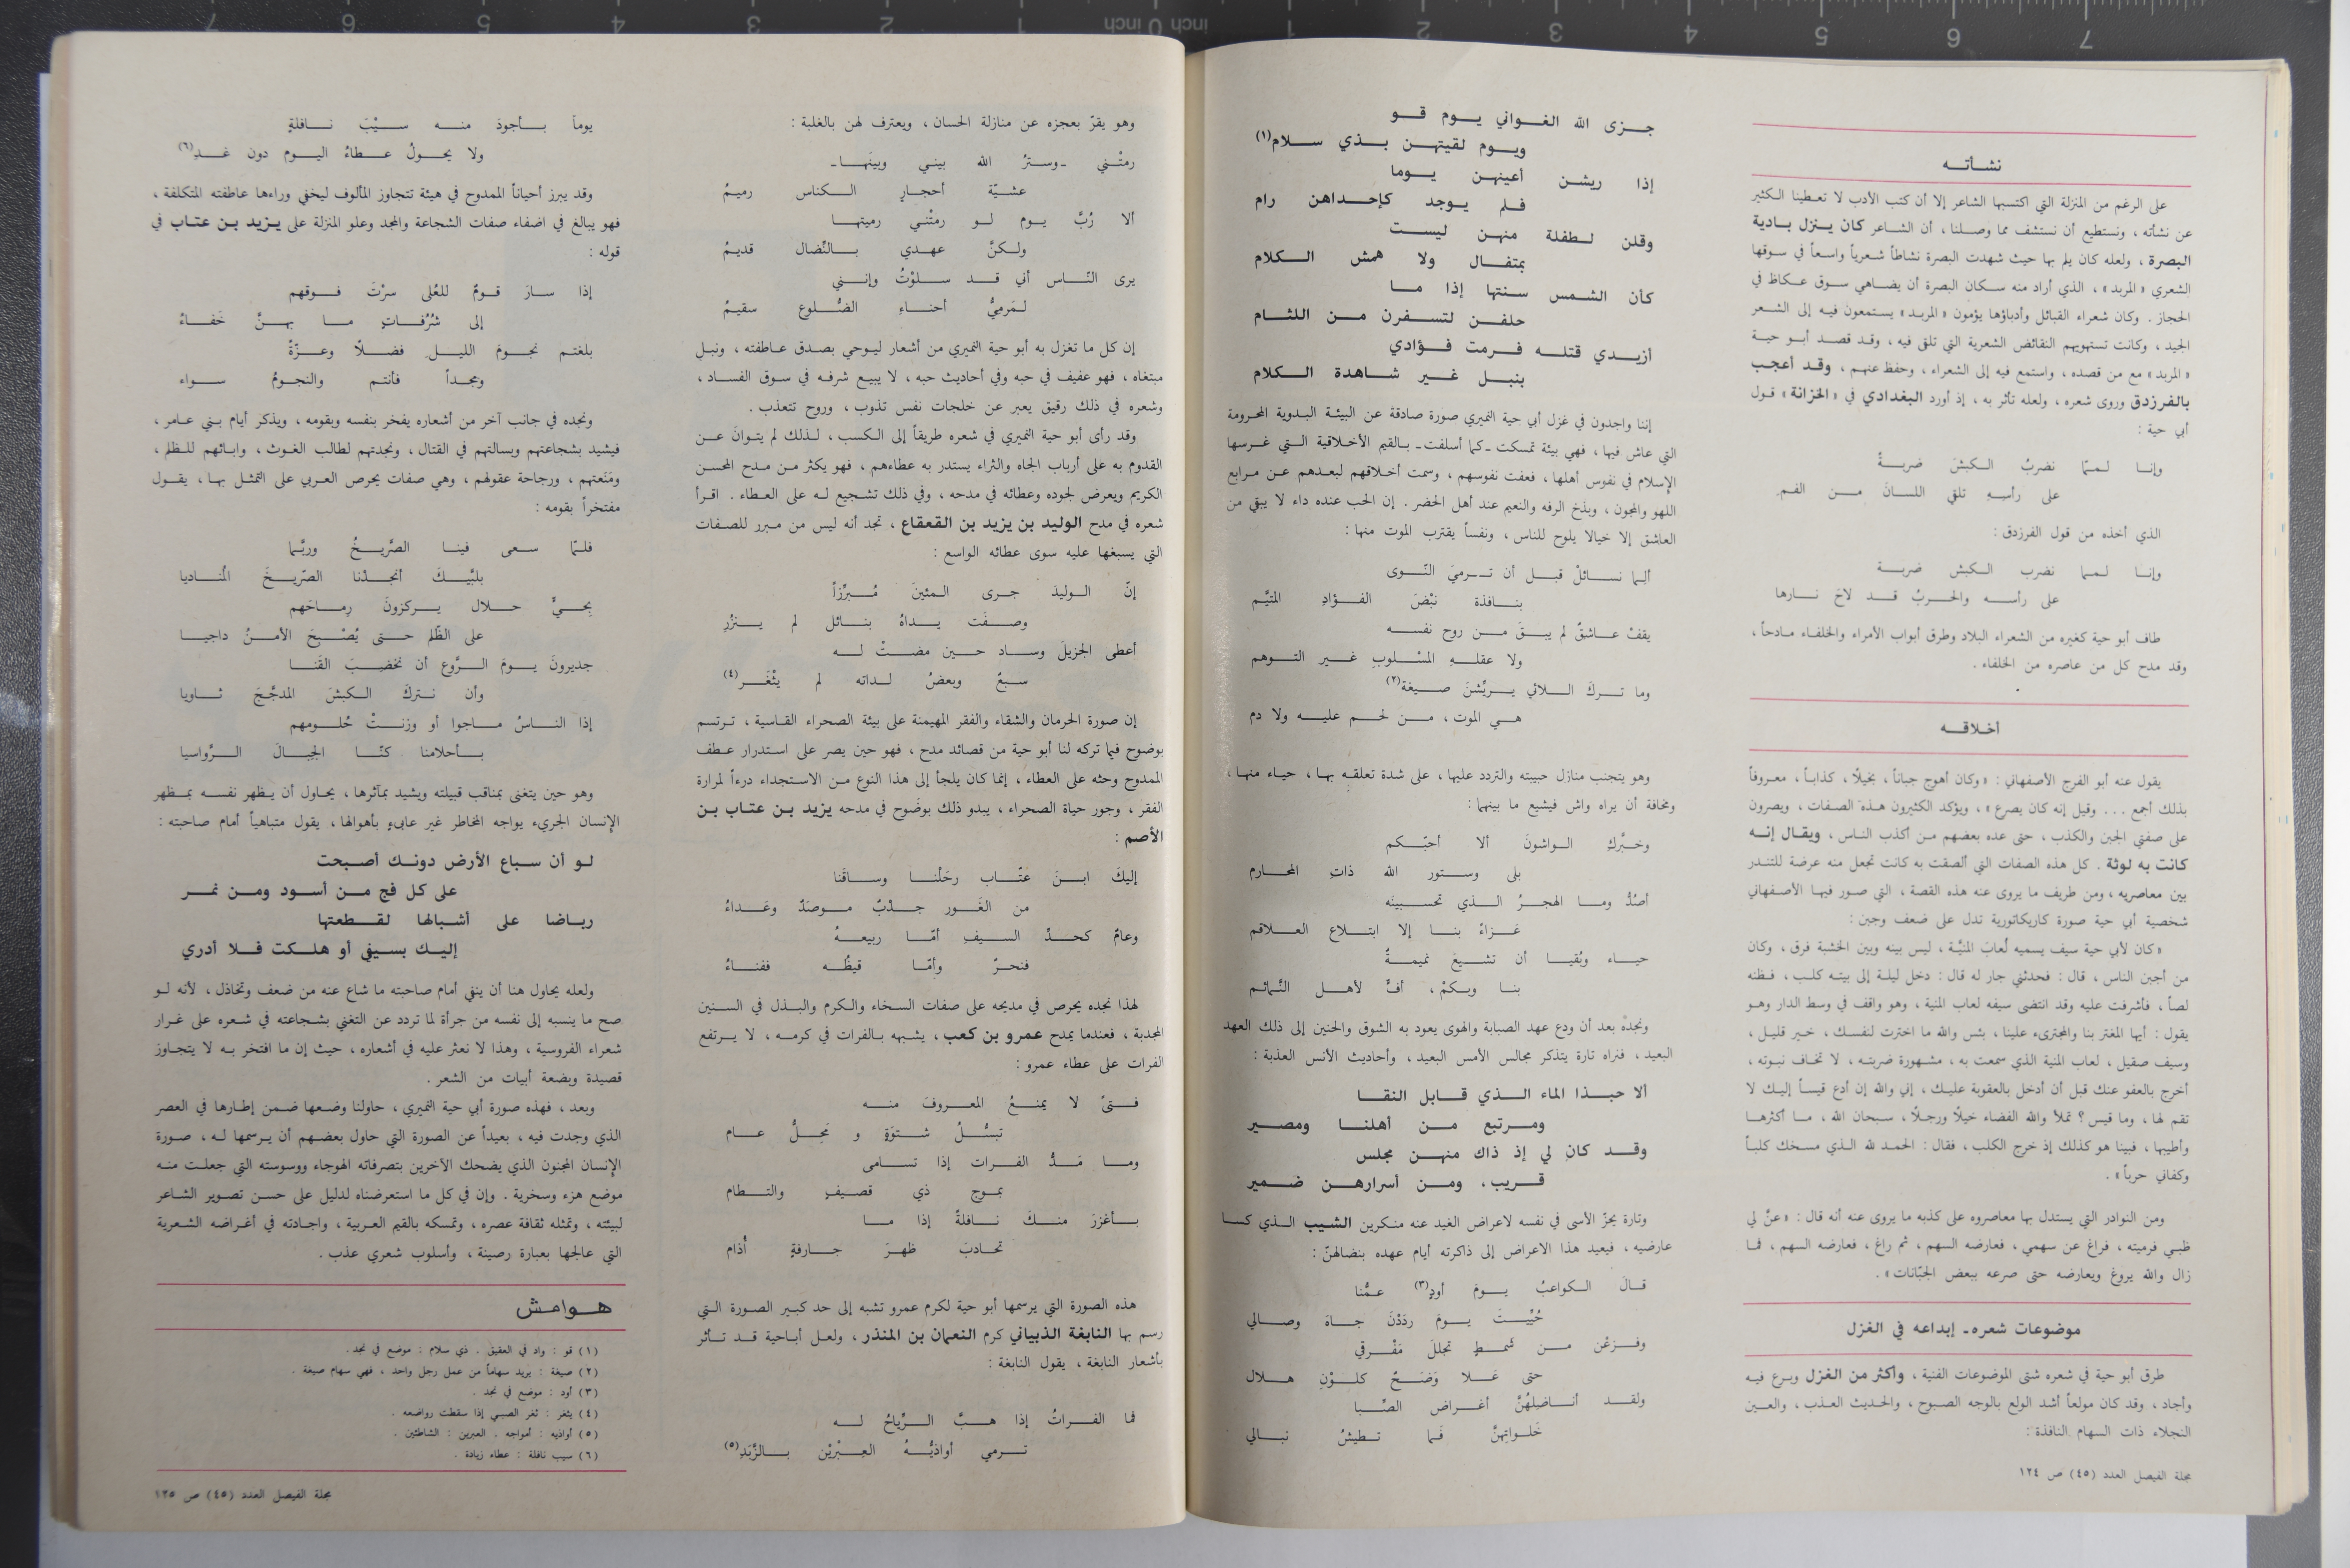 نشأته
على الرغم من المنزلة التي اكتسبها الشاعر إلا أن كتب الأدب لا تعطينا الكثير
عن نشأته ، ونستطيع أن نستشف مما وصلنا ، أن الشاعر كان ينزل بادية
البصرة ، ولعله كان يلم بها حيث شهدت البصرة نشاطاً شعرياً واسعاً في سوقها
الشعري « المربد » ، الذي أراد منه سكان البصرة أن يضاهي سوق عكاظ في
الحجاز . وكان شعراء القبائل وأدباؤها يؤمون « المربد » يستمعون فيه إلى الشعر
الجيد ، وكانت تستهويهم النقائض الشعرية التي تلقى فيه ، وقد قصد أبو حية
« المربد » مع من قصده ، واستمع فيه إلى الشعراء ، وحفظ عنهم ، وقد أعجب
بالفرزدق وروى شعره ، ولعله تأثر به ، إذ أورد البغدادي في « الخزانة » قول
أبي حية :
وإنا لمما نضربُ الكبشَ ضربةً
على رأسِهِ تلقي اللسانَ من الفمِ
الذي أخذه من قول الفرزدق :
وإنا لمما نضرب الكبش ضربة
على رأسه والحربُ قد لاحَ نارها
طاف أبو حية كغيره من الشعراء البلاد وطرق أبواب الأمراء والخلفاء مادحاً ،
وقد مدح كل من عاصره من الخلفاء .
أخلاقه
يقول عنه أبو الفرج الأصفهاني : « وكان أهوج جباناً ، بخيلًا ، كذاباً ، معروفاً
بذلك أجمع ... وقيل إنه كان يصرع » ، ويؤكد الكثيرون هذه الصفات ، ويصرون
على صفتي الجبن والكذب ، حتى عده بعضهم من أكذب الناس ، ويقال إنه
كانت به لوثة . كل هذه الصفات التي ألصقت به كانت تجعل منه عرضة للتندر
بين معاصريه ، ومن طريف ما يروى عنه هذه القصة ، التي صور فيها الأصفهاني
شخصية أبي حية صورة كاريكاتورية تدل على ضعف وجبن :
« كان لأبي حية سيف يسميه لُعابَ المنيَّة ، ليس بينه وبين الخشبة فرق ، وكان
من أجبن الناس ، قال : فحدثني جار له قال : دخل ليلة إلى بيته كلب ، فظنه
لصاً ، فأشرفت عليه وقد انتضى سيفه لعاب المنية ، وهو واقف في وسط الدار وهو
يقول : أيها المغتر بنا والمجترىء علينا ، بئس والله ما اخترت لنفسك ، خير قليل ،
وسيف صقيل ، لعاب المنية الذي سمعت به ، مشهورة ضربته ، لا تخاف نبوته ،
أخرج بالعفو عنك قبل أن أدخل بالعقوبة عليك ، إني والله إن أدع قيساً إليك لا
تقم لها ، وما قيس ؟ تملأ والله الفضاء خيلًا ورجلًا ، سبحان الله ، ما أكثرها
وأطيبها ، فبينا هو كذلك إذ خرج الكلب ، فقال : الحمد لله الذي مسخك كلباً
وكفاني حرباً » .
ومن النوادر التي يستدل بها معاصروه على كذبه ما يروى عنه أنه قال : « عنَّ لي
ظبي فرميته ، فراغ عن سهمي ، فعارضه السهم ، ثم راغ ، فعارضه السهم ، فما
زال والله يروغ ويعارضه حتى صرعه ببعض الجبّانات » .
موضوعات شعره ـ إبداعه في الغزل
طرق أبو حية في شعره شتى الموضوعات الفنية ، وأكثر من الغزل وبرع فيه
وأجاد ، وقد كان مولعاً أشد الولع بالوجه الصبوح ، والحديث العذب ، والعين
النجلاء ذات السهام النافذة :
مجلة الفيصل العدد (٤٥) ص ١٢٤
جزى الله الغواني يوم قو
ويوم لقيتهن بذي سلام(١)
إذا ريشن أعينهن يوما
فلم يوجد كإحداهن رام
وقلن لطفلة منهن ليست
بمتفال ولا همش الكلام
كأن الشمس سنتها إذا ما
حلفن لتسفرن من اللثام
أزيدي قتله فرمت فؤادي
بنبل غير شاهدة الكلام
إننا واجدون في غزل أبي حية النميري صورة صادقة عن البيئة البدوية المحرومة
التي عاش فيها ، فهي بيئة تمسكت ـ كما أسلفت ـ بالقيم الأخلاقية التي غرسها
الإسلام في نفوس أهلها ، فعفت نفوسهم ، وسمت أخلاقهم لبعدهم عن مرابع
اللهو والمجون ، وبذخ الرفه والنعيم عند أهل الحضر . إن الحب عنده داء لا يبقي من
العاشق إلا خيالا يلوح للناس ، ونفساً يقترب الموت منها :
ألِما نسائلْ قبل أن ترميَ النّوى
بنافذة نبْضَ الفؤادِ المتيَّم
يقفْ عاشقٌ لم يبقَ من روح نفسه
ولا عقلهِ المسْلوبِ غير التوهم
وما تركَ اللائي يريِّشنَ صيغة(٢)
هي الموت ، من لحم عليه ولا دم
وهو يتجنب منازل حبيبته والتردد عليها ، على شدة تعلقه بها ، حياء منها ،
ومخافة أن يراه واش فيشيع ما بينهما :
وخبَّركِ الواشونَ ألا أحبّكم
بلى وستور الله ذاتِ المحارم
أصُدُّ وما الهجرُ الذي تحسبينَه
عَزاءً بنا إلا ابتلاع العلاقم
حياء وبُقيا أن تشيعَ نميمةً
بنا وبكمْ ، أفٍّ لأهل النَّمائم
ونجدهُ بعد أن ودع عهد الصبابة والهوى يعود به الشوق والحنين إلى ذلك العهد
البعيد ، فنراه تارة يتذكر مجالس الأمس البعيد ، وأحاديث الأنس العذبة :
ألا حبذا الماء الذي قابل النقا
ومرتبع من أهلنا ومصير
وقد كان لي إذ ذاك منهن مجلس
قريب ، ومن أسرارهن ضمير
وتارة يحزّ الأسى في نفسه لاعراض الغيد عنه منكرين الشيب الذي كسا
عارضيه ، فيعيد هذا الاعراض إلى ذاكرته أيام عهده بنضالهنّ :
قالَ الكواعبُ يومَ أودٍ(٣) عمُّنا
حُيِّيتَ يومَ ردَدْنَ جاهَ وصالي
وفزعْن من شَمطٍ تجللَ مَفْرقي
حتى عَلا وَضَحٌ كلوْنِ هلال
ولقد أناضلهُنَّ أغراض الصِّبا
خَلواتِهنَّ فَما تطيشُ نبالي
وهو يقرّ بعجزه عن منازلة الحسان ، ويعترف لهن بالغلبة :
رمتْني ـ وسترُ الله بيني وبينَها ـ
عشيّة أحجارِ الكناس رميمُ
ألا رُبَّ يوم لو رمتْني رميتها
ولكنَّ عهدي بالنّضال قديمُ
يرى النّاس أني قد سلوْتُ وإنني
لمَرميُّ أحناءِ الضُّلوع سقيمُ
إن كل ما تغزل به أبو حية النميري من أشعار ليوحي بصدق عاطفته ، ونبل
مبتغاه ، فهو عفيف في حبه وفي أحاديث حبه ، لا يبيع شرفه في سوق الفساد ،
وشعره في ذلك رقيق يعبر عن خلجات نفس تذوب ، وروح تتعذب .
وقد رأى أبو حية النميري في شعره طريقاً إلى الكسب ، لذلك لم يتوانَ عن
القدوم به على أرباب الجاه والثراء يستدر به عطاءهم ، فهو يكثر من مدح المحسن
الكريم ويعرض لجوده وعطائه في مدحه ، وفي ذلك تشجيع له على العطاء . اقرأ
شعره في مدح الوليد بن يزيد بن القعقاع ، تجد أنه ليس من مبرر للصفات
التي يسبغها عليه سوى عطائه الواسع :
إنّ الوليدَ جرى المئينَ مُبرِّزاً
وصفَت يداهُ بنائل لم ينزُرِ
أعطى الجزيلَ وساد حين مضتْ له
سبعٌ وبعضُ لداته لم يثْغَر(٤)
إن صورة الحرمان والشقاء والفقر المهيمنة على بيئة الصحراء القاسية ، ترتسم
بوضوح فيما تركه لنا أبو حية من قصائد مدح ، فهو حين يصر على استدرار عطف
الممدوح وحثه على العطاء ، إنما كان يلجأ إلى هذا النوع من الاستجداء درءاً لمرارة
الفقر ، وجور حياة الصحراء ، يبدو ذلك بوضوح في مدحه يزيد بن عتاب بن
الأصم :
إليكَ ابنَ عتّاب رحَلْنا وساقَنا
من الغَور جدْبٌ موصَدٌ وغَداءُ
وعامٌ كحدِّ السيفِ أمّا ربيعهُ
فنحرٌ وأمّا قيظُه ففناءُ
لهذا نجده يحرص في مديحه على صفات السخاء والكرم والبذل في السنين
المجدبة ، فعندما يمدح عمرو بن كعب ، يشبهه بالفرات في كرمه ، لا يرتفع
الفرات على عطاء عمرو :
فتىً لا يمنعُ المعروفَ منه
تبسُّلُ شتوَةٍ و مَحِلُّ عام
وما مَدُّ الفرات إذا تسامى
بموج ذي قصيفٍ والتطام
بأغزرَ منكَ نافلةً إذا ما
تحادبَ ظهرَ جارفةٍ أُذام
هذه الصورة التي يرسمها أبو حية لكرم عمرو تشبه إلى حد كبير الصورة التي
رسم بها النابغة الذبياني كرم النعمان بن المنذر ، ولعل أباحية قد تأثر
بأشعار النابغة ، يقول النابغة :
فما الفراتُ إذا هبَّ الرِّياحُ له
ترمي أواذيُّهُ العِبْريْنِ بالزَّبَدِ(٥)
يوماً بأجودَ منه سيْبَ نافلةٍ
ولا يحولُ عطاءُ اليوم دون غدِ(٦)
وقد يبرز أحياناً الممدوح في هيئة تتجاوز المألوف ليخفي وراءها عاطفته المتكلفة ،
فهو يبالغ في اضفاء صفات الشجاعة والمجد وعلو المنزلة على يزيد بن عتاب في
قوله :
إذا سارَ قومٌ للعُلى سرْتَ فوقهم
إلى شُرُفاتٍ ما بهنَّ خَفاءُ
بلغتم نجومَ الليل فضلًا وعزّةً
ومجداً فأنتم والنجومُ سواء
ونجده في جانب آخر من أشعاره يفخر بنفسه وبقومه ، ويذكر أيام بني عامر ،
فيشيد بشجاعتهم وبسالتهم في القتال ، ونجدتهم لطالب الغوث ، وابائهم للظلم ،
ومَنَعتهم ، ورجاحة عقولهم ، وهي صفات يحرص العربي على التمثل بها ، يقول
مفتخراً بقومه :
فلمّا سعى فينا الصَّريخُ وربَّما
بلبَّيكَ أنجدْنا الصّريخَ المُناديا
بِحيٍّ حلال يركزونَ رِماحَهم
على الظّلم حتى يُصْبحَ الأمنُ داجيا
جديرونَ يومَ الرَّوع أن نخضبَ القَنا
وأن نتركَ الكبشَ المدجَّجَ ثاويا
إذا الناسُ ماجوا أو وزنتْ حُلومهم
بأحلامنا كنّا الجِبالَ الرَّواسيا
وهو حين يتغنى بمناقب قبيلته ويشيد بمآثرها ، يحاول أن يظهر نفسه بمظهر
الإنسان الجريء يواجه المخاطر غير عابىءٍ بأهوالها ، يقول متباهياً أمام صاحبته :
لو أن سباع الأرض دونك أصبحت
على كل فج من أسود ومن نمر
رياضا على أشبالها لقطعتها
إليك بسيفي أو هلكت فلا أدري
ولعله يحاول هنا أن ينفي أمام صاحبته ما شاع عنه من ضعف وتخاذل ، لأنه لو
صح ما ينسبه إلى نفسه من جرأة لما تردد عن التغني بشجاعته في شعره على غرار
شعراء الفروسية ، وهذا لا نعثر عليه في أشعاره ، حيث إن ما افتخر به لا يتجاوز
قصيدة وبضعة أبيات من الشعر .
وبعد ، فهذه صورة أبي حية النميري ، حاولنا وضعها ضمن إطارها في العصر
الذي وجدت فيه ، بعيداً عن الصورة التي حاول بعضهم أن يرسمها له ، صورة
الإنسان المجنون الذي يضحك الآخرين بتصرفاته الهوجاء ووسوسته التي جعلت منه
موضع هزء وسخرية . وإن في كل ما استعرضناه لدليل على حسن تصوير الشاعر
لبيئته ، وتمثله ثقافة عصره ، وتمسكه بالقيم العربية ، واجادته في أغراضه الشعرية
التي عالجها بعبارة رصينة ، وأسلوب شعري عذب .
هوامش
(١) قو : واد في العقيق . ذي سلام : موضع في نجد.
(٢) صيغة : يريد سهاماً من عمل رجل واحد ، فهي سهام صيغة .
(٣) أود : موضع في نجد .
(٤) يثغر : ثغر الصبي إذا سقطت رواضعه .
(٥) أواذيه : أمواجه . العبرين : الشاطئين .
(٦) سيب نافلة : عطاء زيادة .
مجلة الفيصل العدد (٤٥) ص ١٢٥
7 6 5 4 3 2 1 inch 0 inch 1 2 3 4 5 6 7